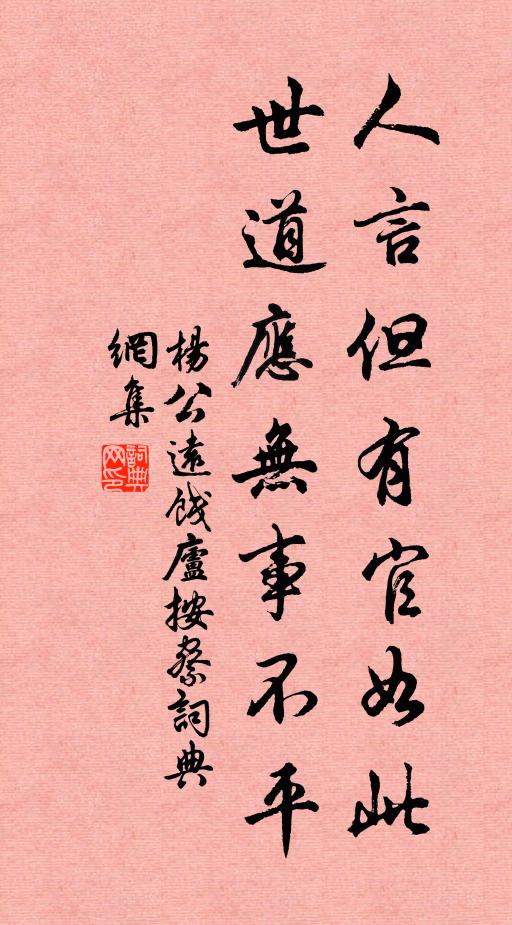 人言但有官如此
世道應無事不平
楊公遠餞廬按察詞典
網集
詞典網印